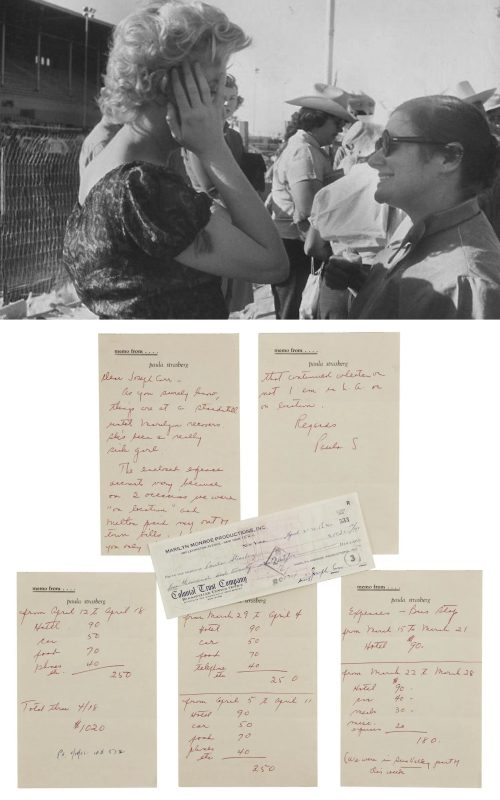 memo from . . . .
paula strasberg
Dear Joseph Carr -
As you surely know,
things are at a standstill
until Marilyn recovers.
She's been a really
sick girl.
The enclosed expense
accounts vary because
on 2 occasions we were
"on location" and
Milton paid my out of
town bills.
you only
memo from . . . .
paula strasberg
that continued whether or
not I am in L.A. or
on location.
Regards
Paula S
MARILYN MONROE PRODUCTIONS, INC.
Colonial Trust Company
paula strasberg
from April 12 to April 18
Hotel 90
car 50
food 70
phones 40
etc. 250
Total thru 4/18
$1020
paula strasberg
from March 29 to April 4
hotel 90
car 50
food 70
telephone 40
etc 250
from April 5 to April 11
Hotel 90
car 50
food 70
phones
etc 40
250
memo from . . . .
paula strasberg
Expenses - Bus Stop
from March 15 to March 21
Hotel $90.
from March 22 to March 28
Hotel $90 -
car 40 -
meals 30 -
misc. expenses 20
180.
(We were in Sun Valley part of
this week